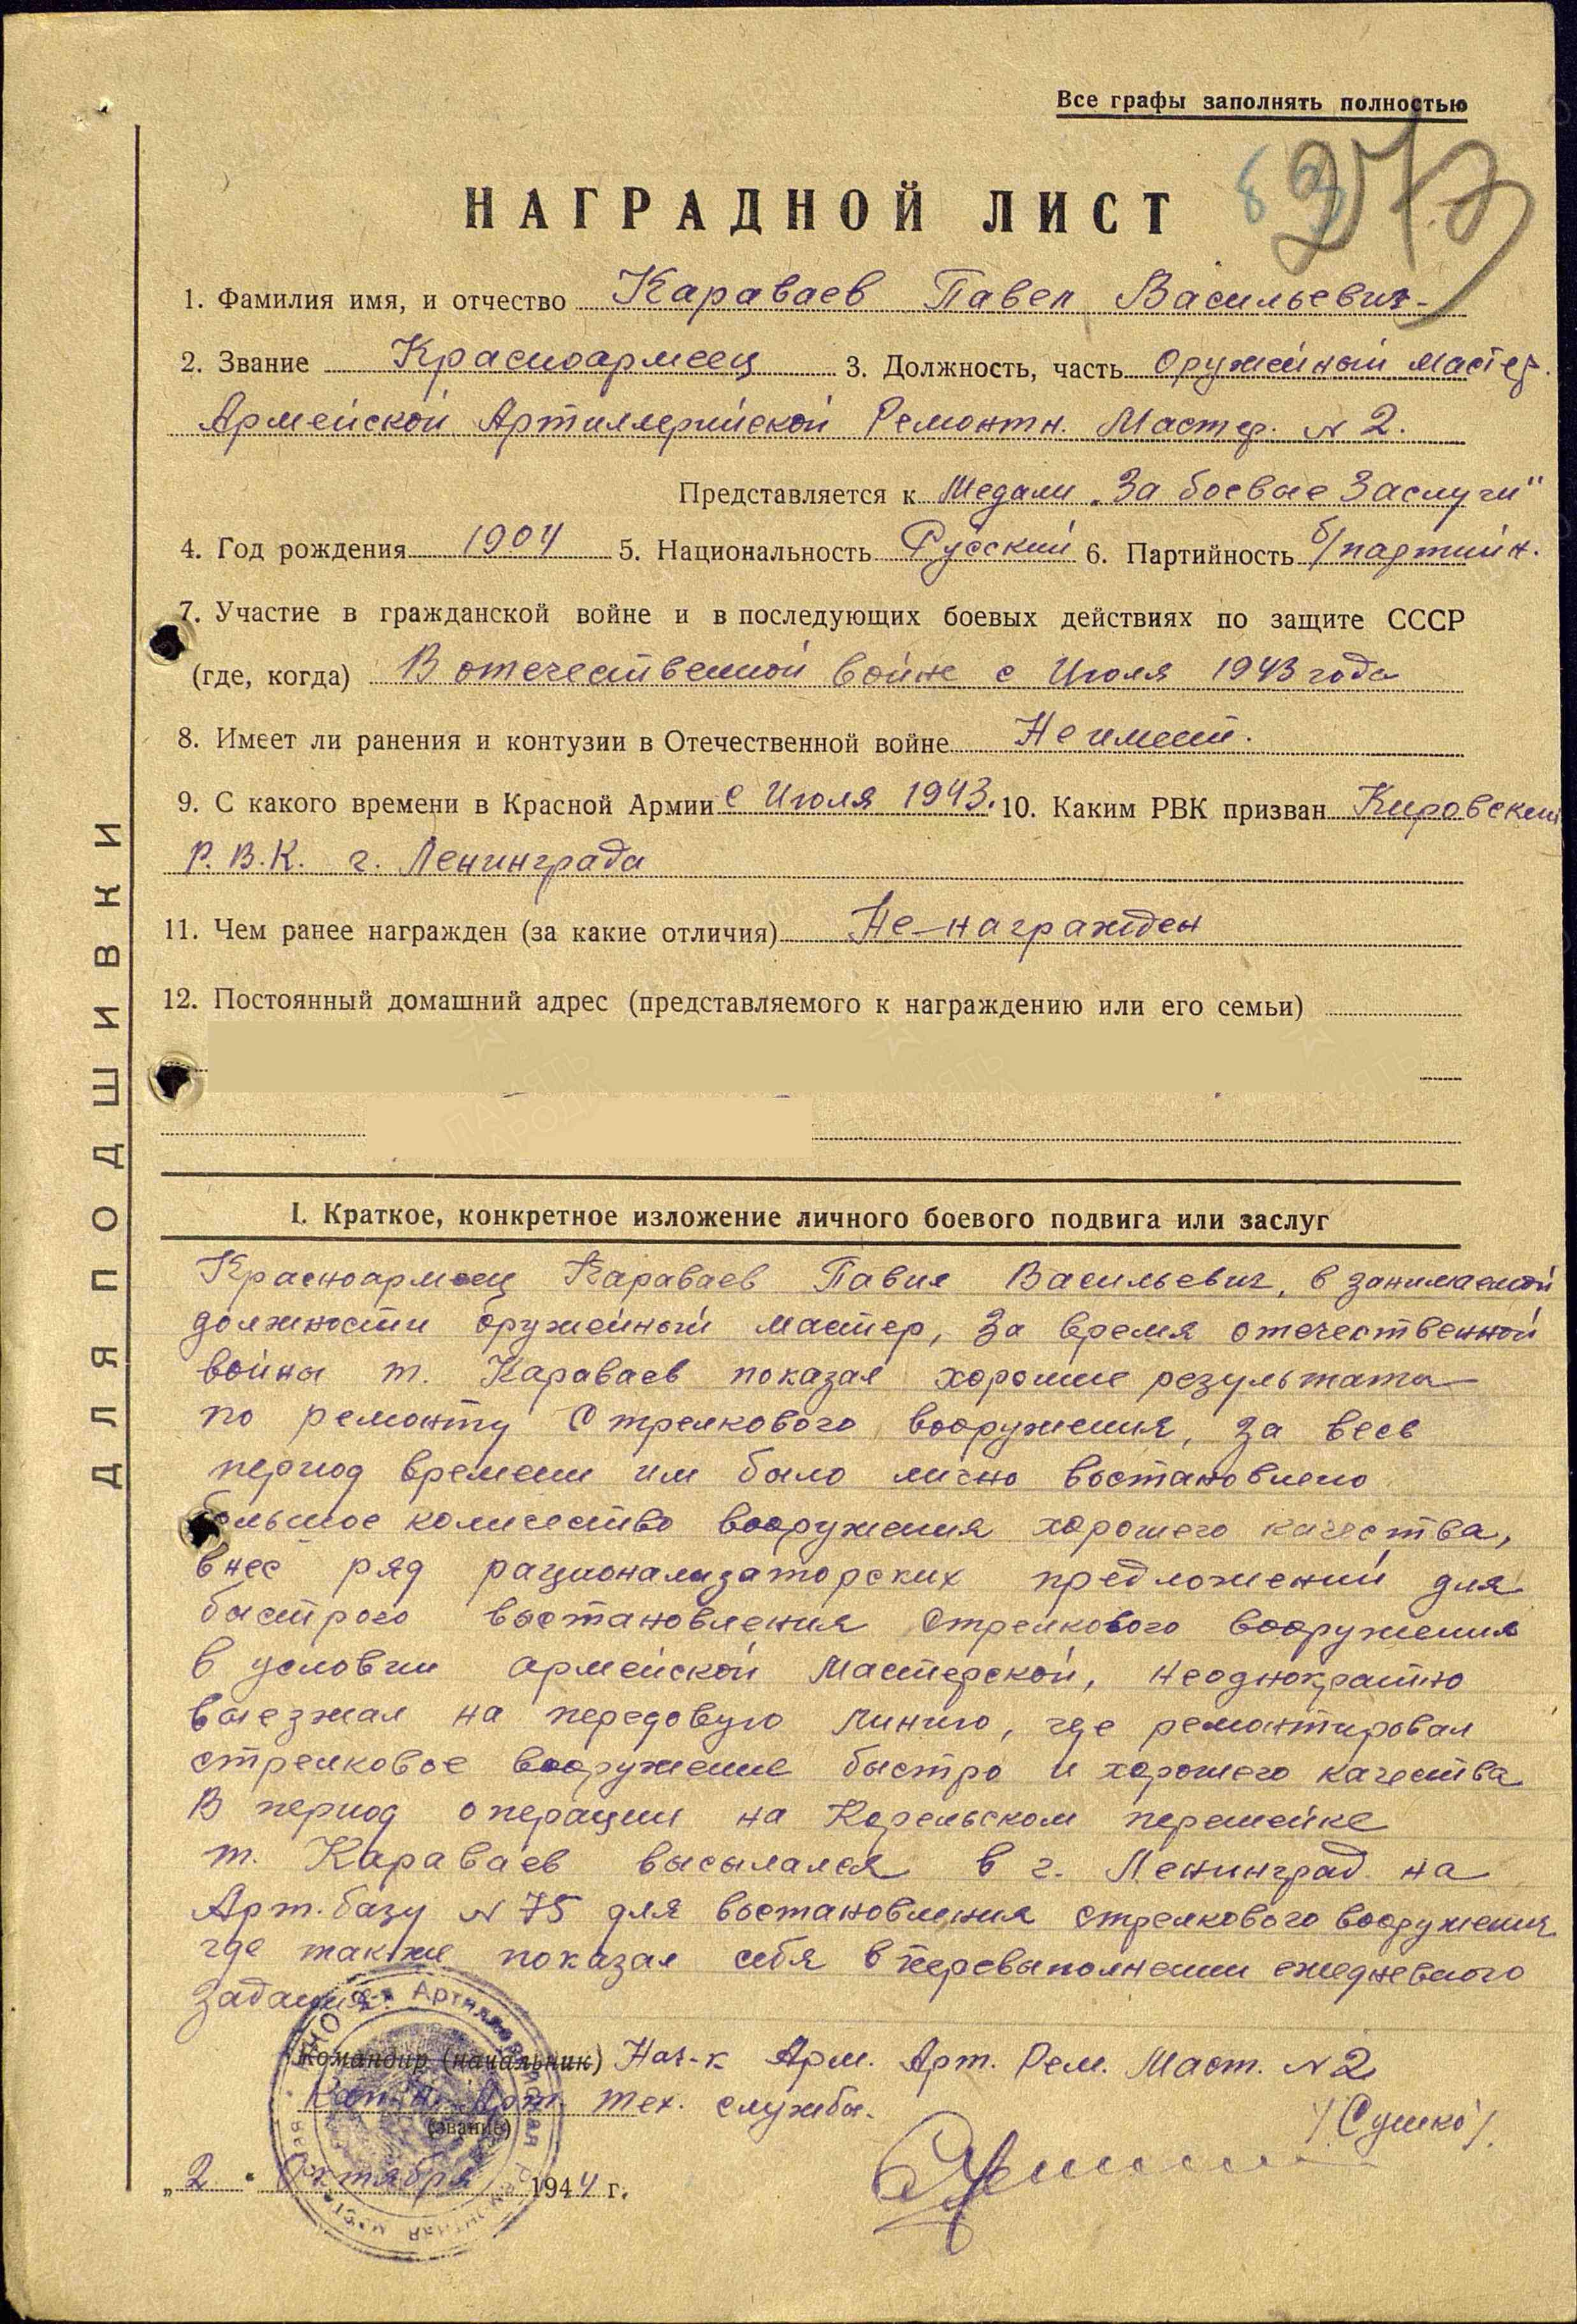 Все графы заполнять полностью
НАГРАДНОЙ ЛИСТ
1. Фамилия имя, и отчество Караваев Павел Васильевич
2. Звание Красноармеец 3. Должность, часть Оружейный мастер.
Армейской Артиллерийской Ремонтн. Мастер. N 2.
Представляется к Медали „За боевые Заслуги"
4. Год рождения 1904 5. Национальность Русский 6. Партийность б/партийн.
7. Участие в гражданской войне и в последующих боевых действиях по защите СССР
(где, когда) В отечественной войне с Июля 1943 года
8. Имеет ли ранения и контузии в Отечественной войне Не имеет.
9. С какого времени в Красной Армии с Июля 1943. 10. Каким РВК призван Кировским
Р.В.К. г. Ленинграда
11. Чем ранее награжден (за какие отличия) Не-награжден
12. Постоянный домашний адрес (представляемого к награждению или его семьи)
ДЛЯ ПОДШИВКИ
I. Краткое, конкретное изложение личного боевого подвига или заслуг
Красноармеец Караваев Павел Васильевич, в занимаемой
должности оружейный мастер, за время отечественной
войны т. Караваев показал хорошие результаты
по ремонту стрелкового вооружения, за весь
период времени им было лично востановлено
большое количество вооружения хорошего качества,
внес ряд рационализаторских предложений для
быстрого востановления стрелкового вооружения
в условии армейской Мастерской, неоднократно
выезжал на передовую линию, где ремонтировал
стрелковое вооружение быстро и хорошего качества
В период операции на Карельском перешейке
т. Караваев высылался в г. Ленинград на
Арт. базу N 75 для востановления стрелкового вооружения
где также показал себя в перевыполнении ежедневного
задания.
Командир (начальник) Нач-к Арм. Арт. Рем. Маст. N 2
Кап-н Арт. тех. службы.
(звание)
/Сушко/.
„2" Октября 1944 г.